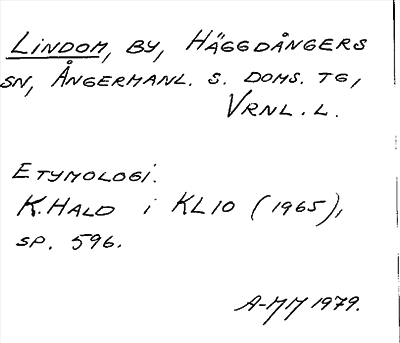 LINDOM, BY, HÄGGDÅNGERS
SN, ÅNGERMANL. S. DOMS. TG,
VRNL. L.
ETYMOLOGI:
K. HALD i KL10 (1965),
SP. 596.
A-MM 1979.